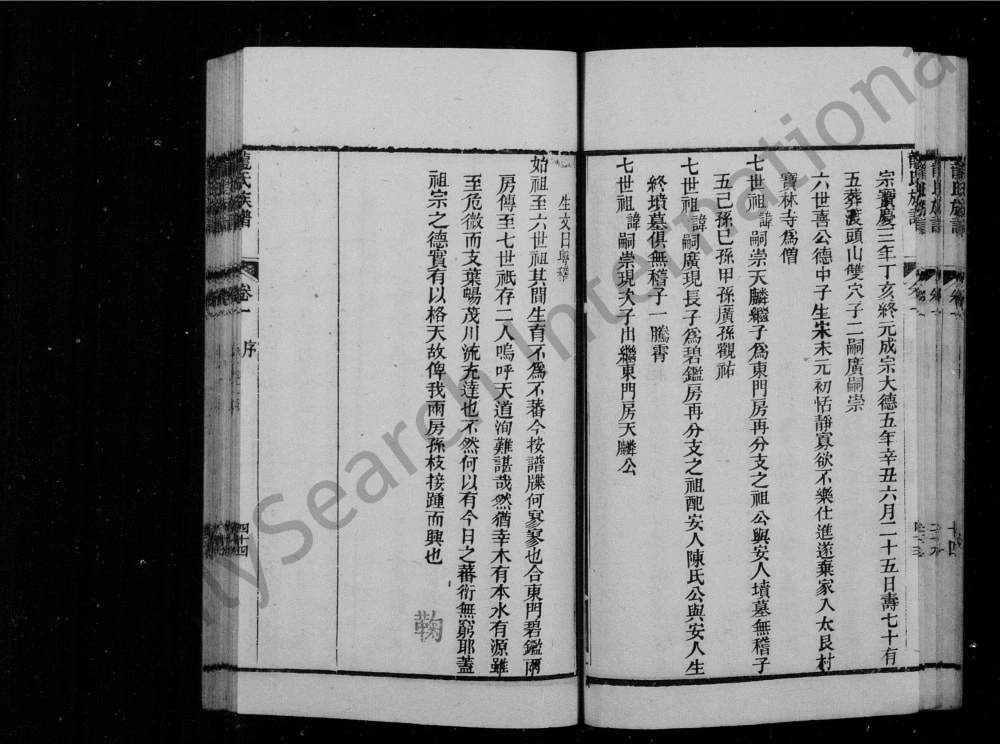 宗寶慶三年丁亥終元成宗大德五年辛丑六月二十五日壽七十有
五葬渡頭山雙穴子二嗣廣嗣崇
六世喜公德中子生宋末元初恬靜寡欲不樂仕進遂棄家入太艮村
寶林寺爲僧
七世祖諱嗣崇天麟繼子爲東門房再分支之祖公與安人墳墓無稽子
五己孫巳孫甲孫廣孫觀祐
七世祖諱嗣廣現長子爲碧鑑房再分支之祖配安人陳氏公與安人生
終墳墓俱無稽子一騰霄
七世祖諱嗣崇現次子出繼東門房天麟公
生文日
始祖至六世祖其間生育不爲不蕃今按譜牒何寥寥也合東門碧鑑兩
房傳至七世祗存二人嗚呼天道洵難諶哉然猶幸木有本水有源雖
至危微而支葉暢茂川流充達也不然何以有今日之蕃衍無窮耶蓋
祖宗之德實有以格天故俾我兩房孫枝接踵而興也
鞠
龍氏族譜 卷一 序 四十四
FamilySearch International